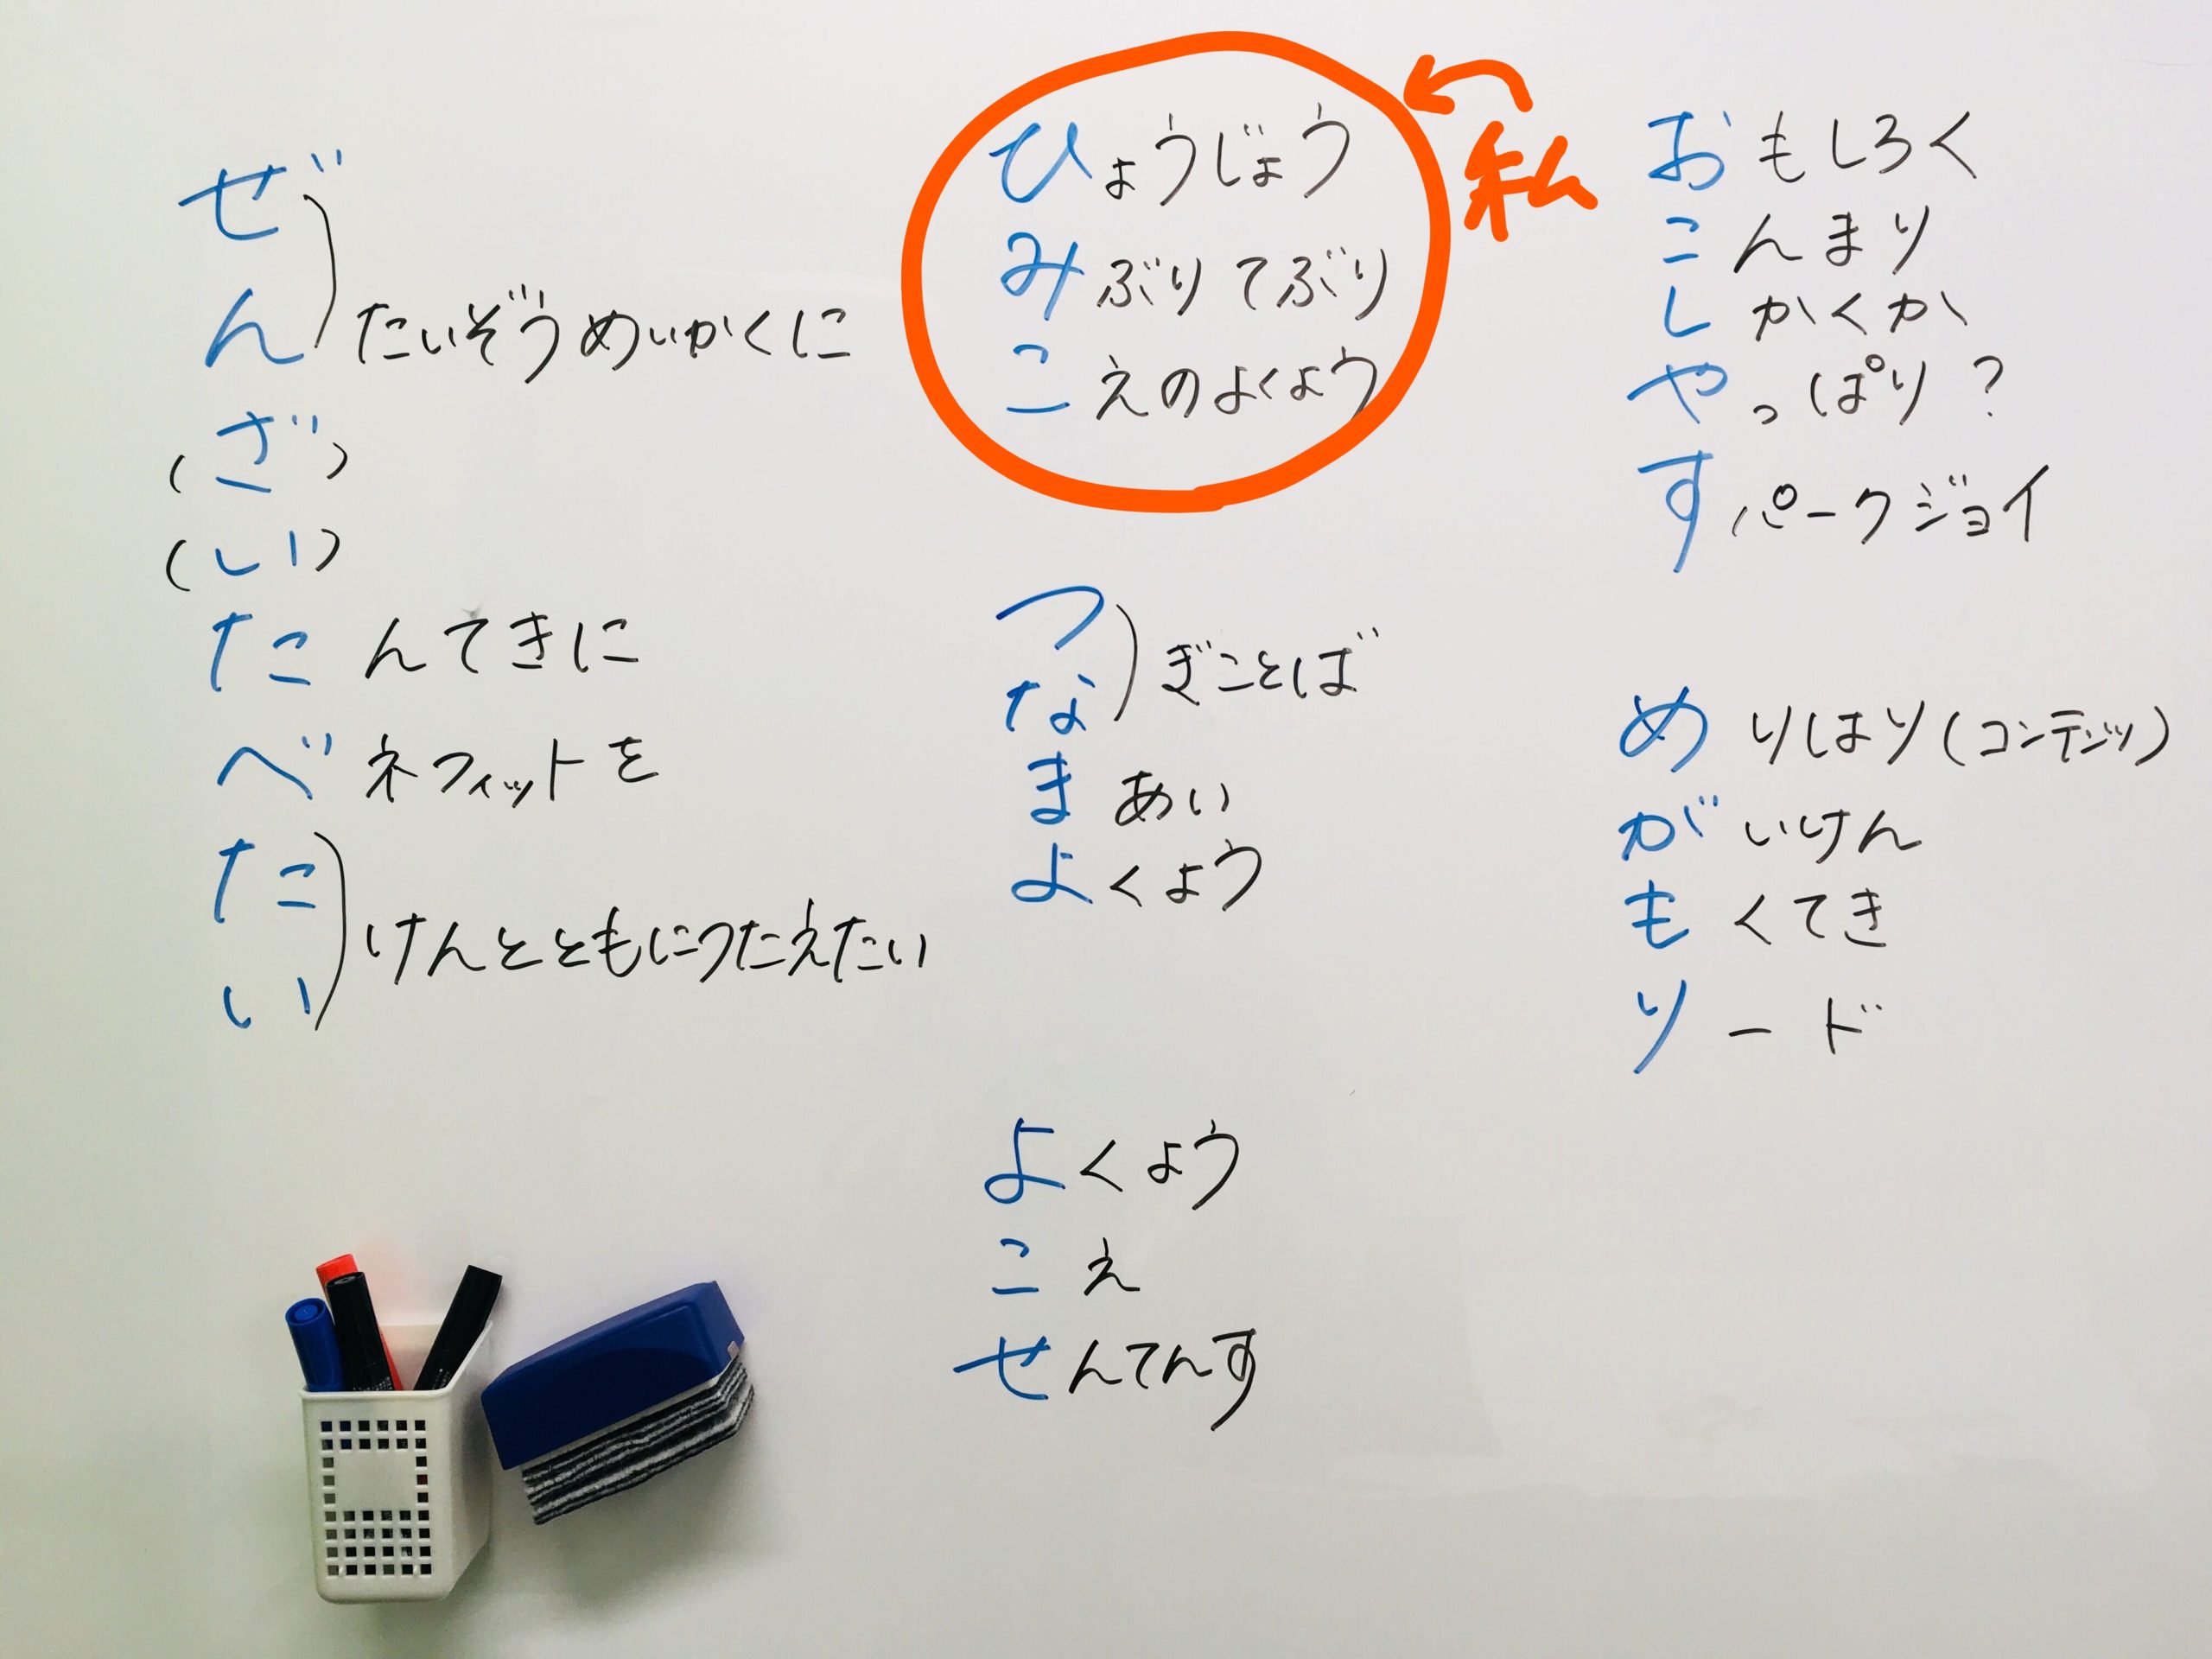 ぜ
ん
たいぞうめいかくに
(ざ)
(しい)
たんてきに
ベネフィットを
た
い
けんとともにつたえたい
ひょうじょう
みぶりてぶり
こえのよくよう
私
つ
な
ぎことば
まあい
よくよう
よくよう
こえ
せんてんす
おもしろく
こんまり
しかくか
やっぱり?
すパークジョイ
めりはり(コンテンツ)
がいけん
もくてき
リード